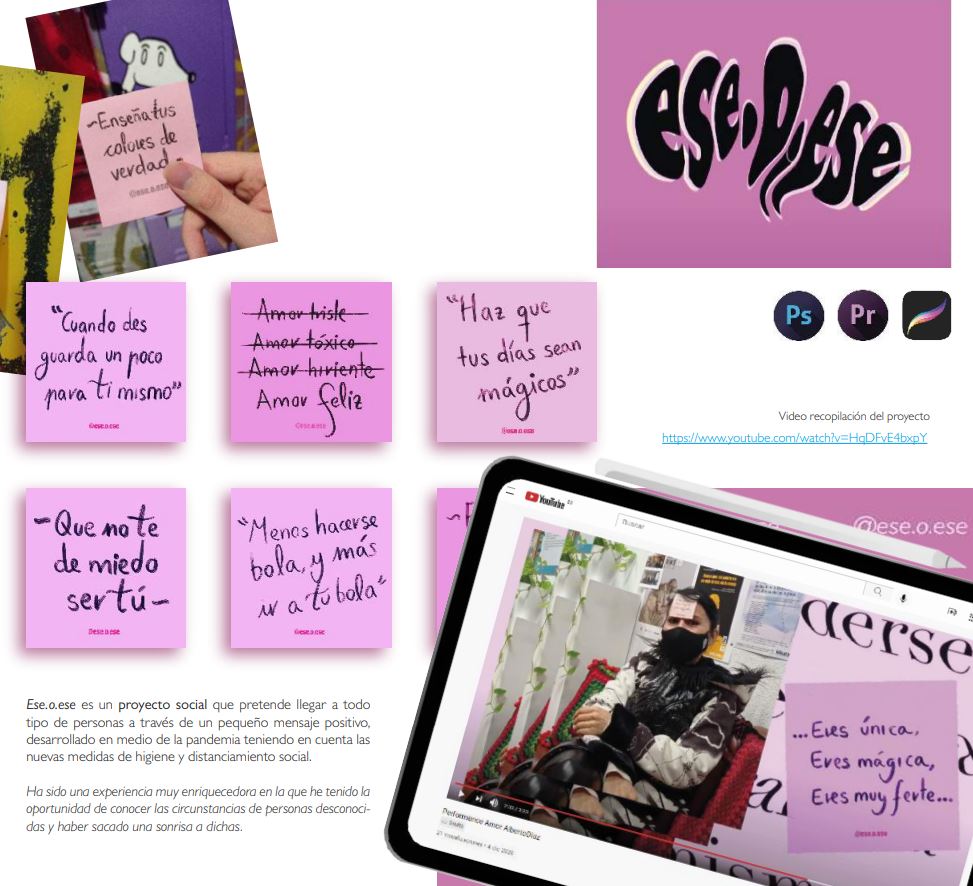 -Enseña tus
colores de
verdad-
@ese.o.ese
ese.o.ese
Ps
Pr
"Cuando des
guarda un poco
para ti mismo"
@ese.o.ese
Amor triste
Amor tóxico
Amor hiriente
Amor feliz
@ese.o.ese
"Haz que
tus días sean
mágicos"
@ese.o.ese
Video recopilación del proyecto
https://www.youtube.com/watch?v=HqDFvE4bxpY
-Que no te
de miedo
ser tú-
@ese.o.ese
"Menos hacerse
bola, y más
ir a tú bola"
@ese.o.ese
@ese.o.ese
YouTube ES
Buscar
derse
...Eres única,
Eres mágica,
Eres muy ferte...
@ese.o.ese
Performance Amor AlbertoDiaz
21 visualizaciones • 4 dic 2020
Ese.o.ese es un proyecto social que pretende llegar a todo
tipo de personas a través de un pequeño mensaje positivo,
desarrollado en medio de la pandemia teniendo en cuenta las
nuevas medidas de higiene y distanciamiento social.
Ha sido una experiencia muy enriquecedora en la que he tenido la
oportunidad de conocer las circunstancias de personas desconoci-
das y haber sacado una sonrisa a dichas.